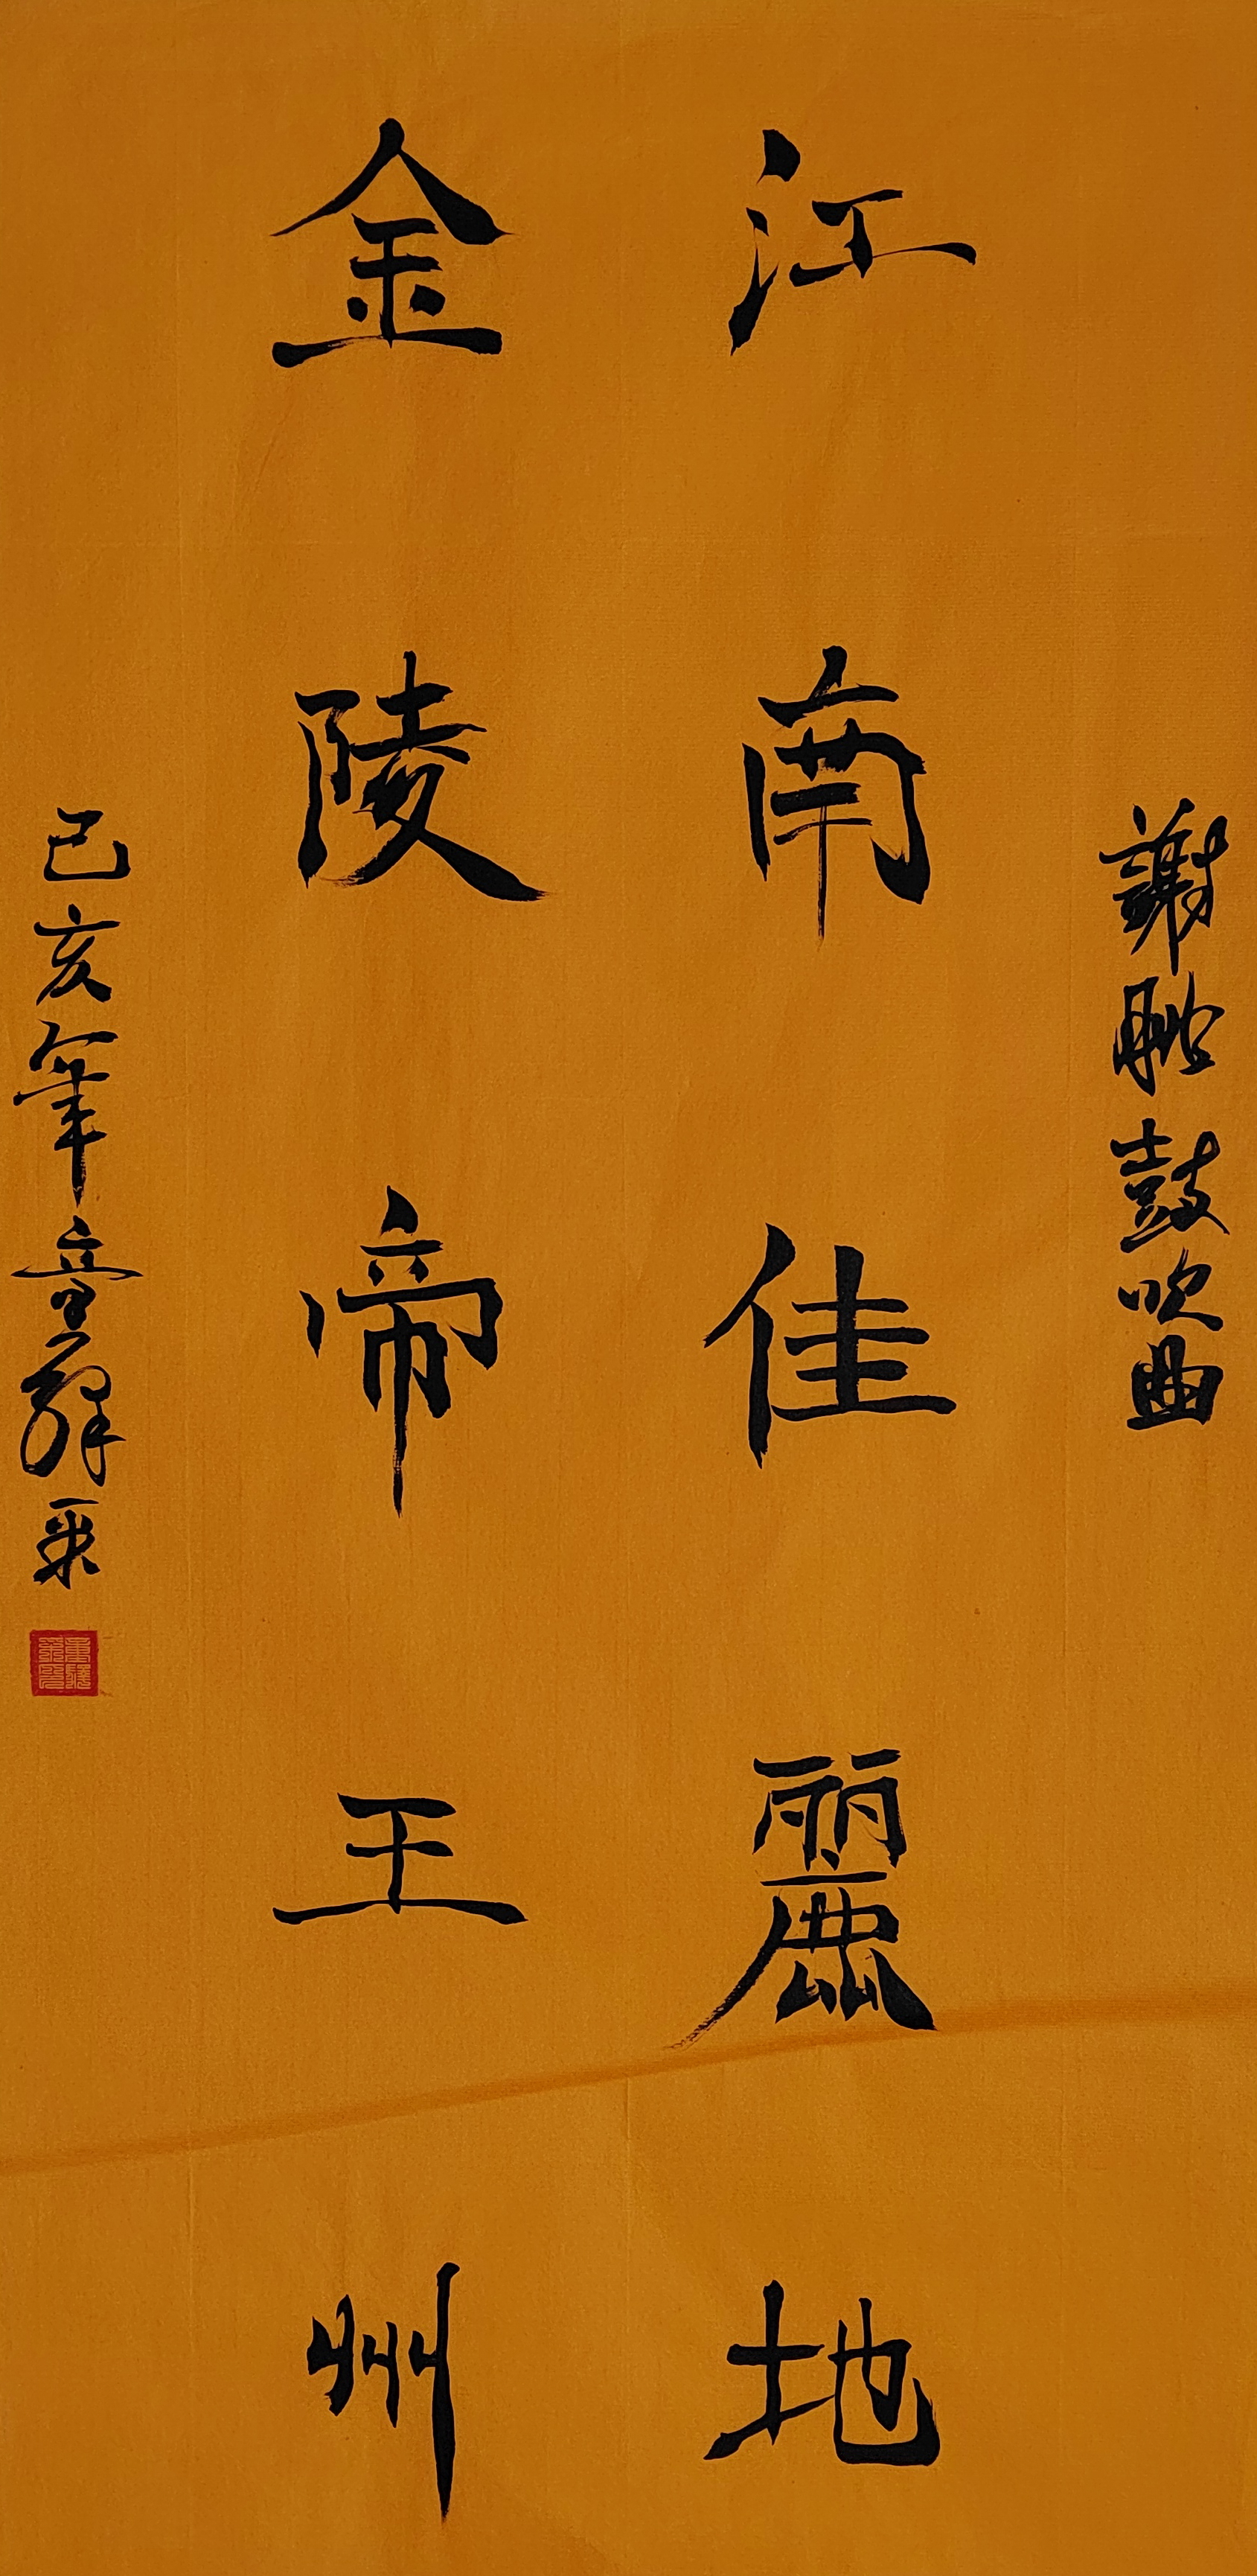 謝朓鼓吹曲
江南佳麗地
金陵帝王州
己亥年章